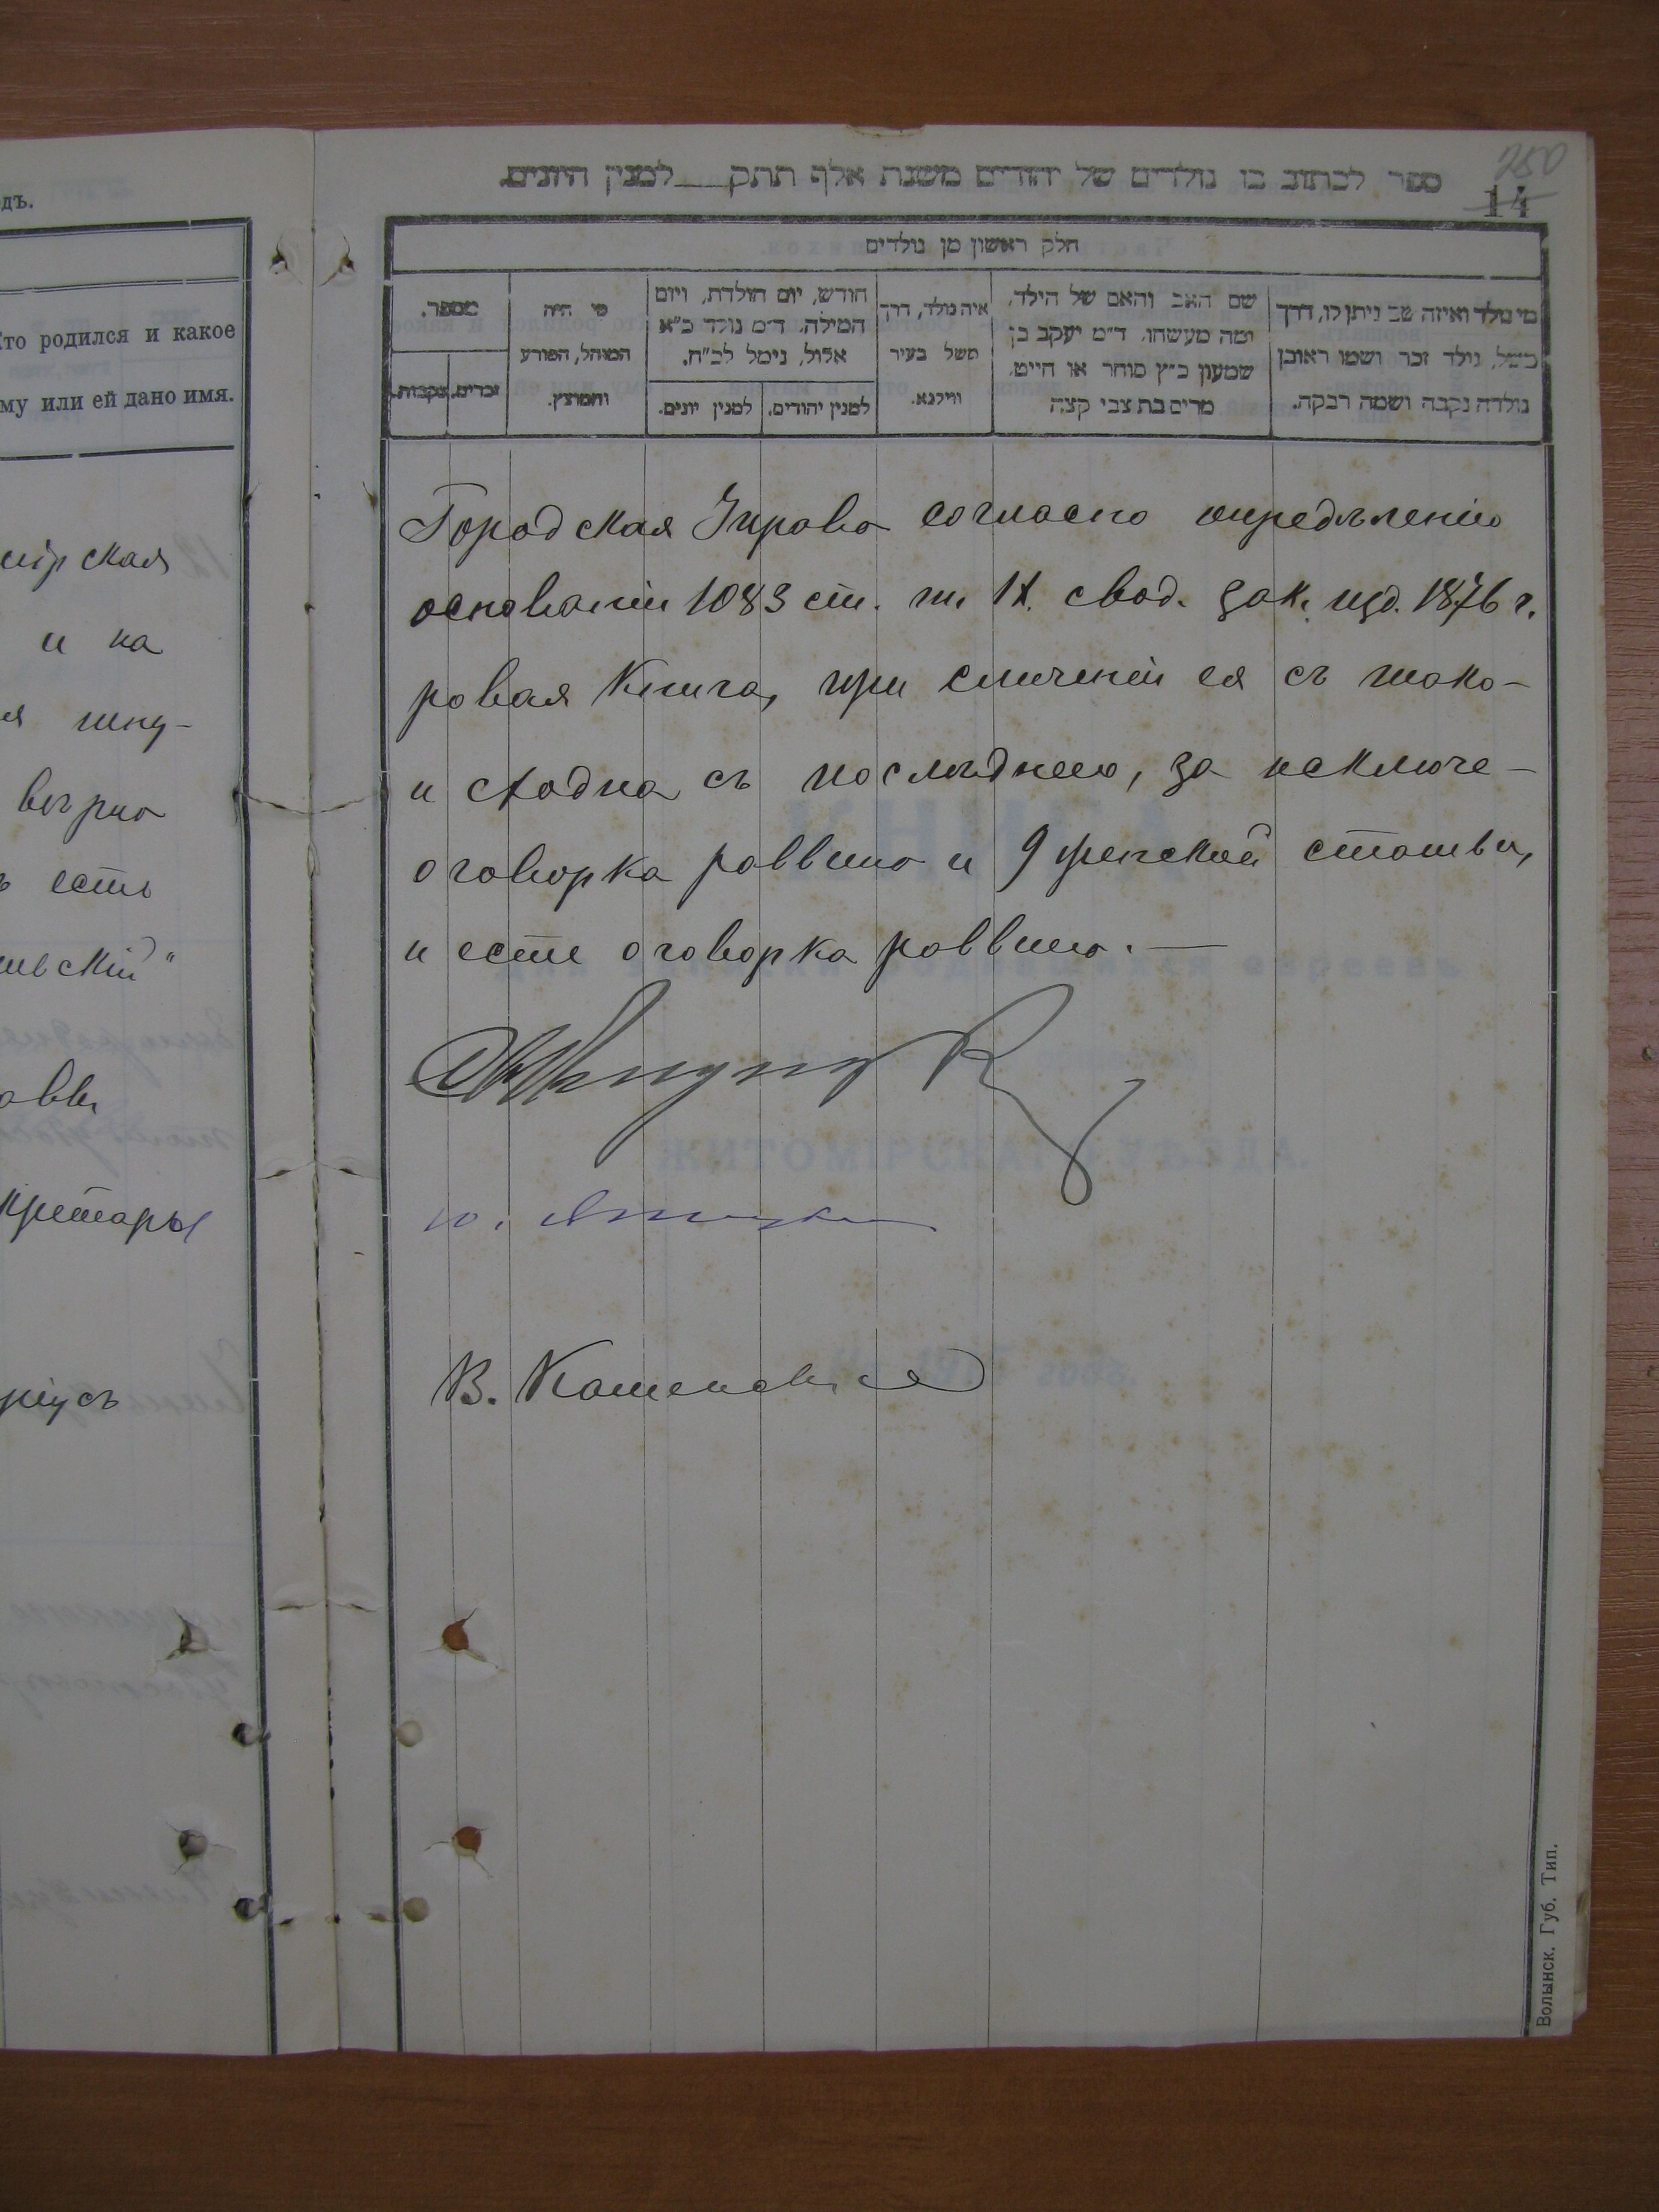 дъ.
Кто родился и какое
му или ей дано имя.
мірская
и на
вѣрно
есть
кретарь
250
14
ספר לכתוב בו נולדים של יהודים משנת אלף תתק למנין היונים.
חלק ראשון מן נולדים
מי נולד ואיזה שם ניתן לו, דרך
משל, נולד זכר ושמו ראובן
נולדה נקבה ושמה רבקה.
שם האב והאם של הילד,
ומה מעשהו. ד״מ יעקב בן
שמעון כ״ץ סוחר או חייט,
מרים בת צבי קצה
איה נולד, דרך
משל בעיר
ווילנא.
חודש, יום הולדת, ויום
המילה. ד״מ נולד כ״א
אלול, נימל לכ״ח.
למנין יהודים.
למנין יונים.
מי היה
המוהל, הפורע
והמוצץ.
מספר.
זכרים.
נקבות.
Городская Управа согласно опредѣленію
основаніи 1083 ст. т. IX. свод. зак. изд. 1876 г.
ровая книга, при сличеніи ея съ тако-
и сходна съ послѣднею, за исключе-
оговорка раввина и 9 женской статьи,
и есть оговорка раввина. —
В.
ЖИТОМІРСКА УѢЗДА.
Волынск. Губ. Тип.